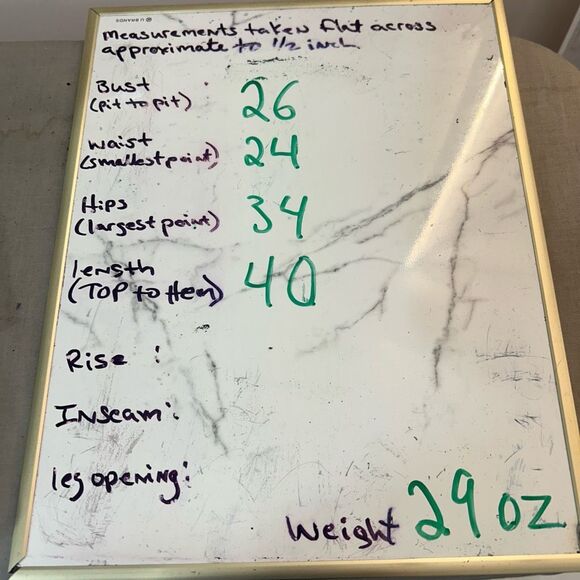 U BRANDS
measurements taken flat across
approximate to 1/2 inch
Bust
(pit to pit)
26
waist
(smallest point)
24
Hips
(largest point)
34
length
(TOP to Hem)
40
Rise :
Inseam:
leg opening:
Weight 29 oz